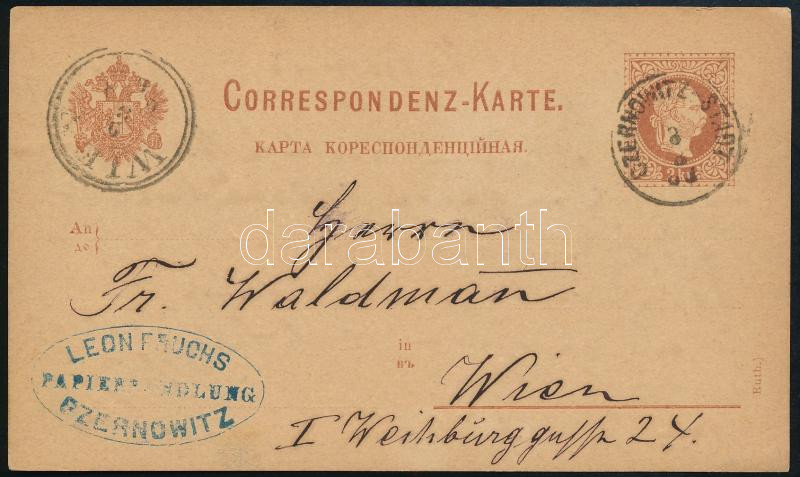 CORRESPONDENZ-KARTE.
КАРТА КОРЕСПОНДЕНЦІЙНАЯ.
WIEN
CZERNOWITZ-STADT
2 kr
An
до
Herrn
Fr. Waldman̄
in
въ
Wien
I Weihburggasse 24.
LEON FRUCHS
PAPIERHANDLUNG
CZERNOWITZ
(Ruth.)
darabanth